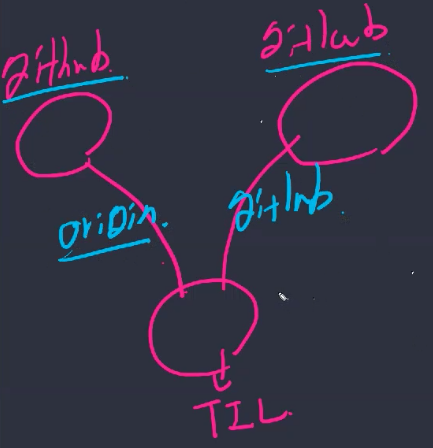 github
gitlab
origin.
gitlab.
TIL.